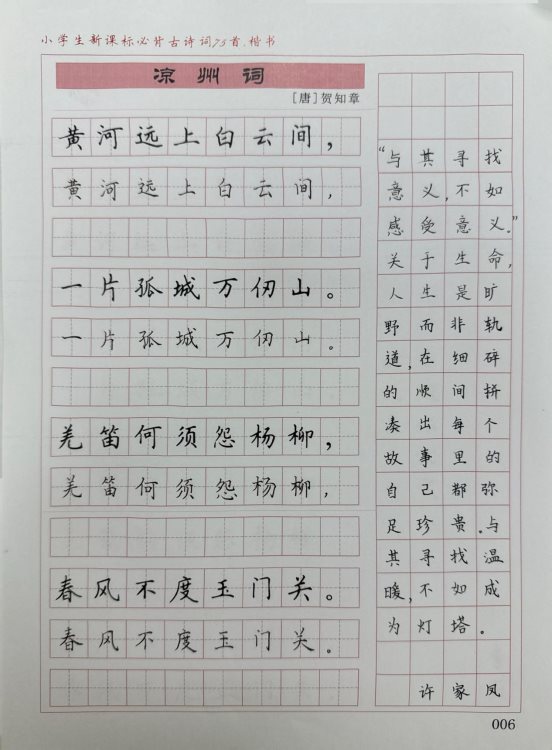 小学生新课标必背古诗词75首.楷书
凉州词
[唐]贺知章
黄河远上白云间，
黄河远上白云间，
一片孤城万仞山。
一片孤城万仞山。
羌笛何须怨杨柳，
羌笛何须怨杨柳，
春风不度玉门关。
春风不度玉门关。
“与其寻找
意义，不如
感受意义。”
关于生命，
人生是旷
野而非轨
道，在细碎
的顺间拼
凑出每个
故事里的
自己都弥
足珍贵。与
其寻找温
暖，不如成
为灯塔。
许家凤
006